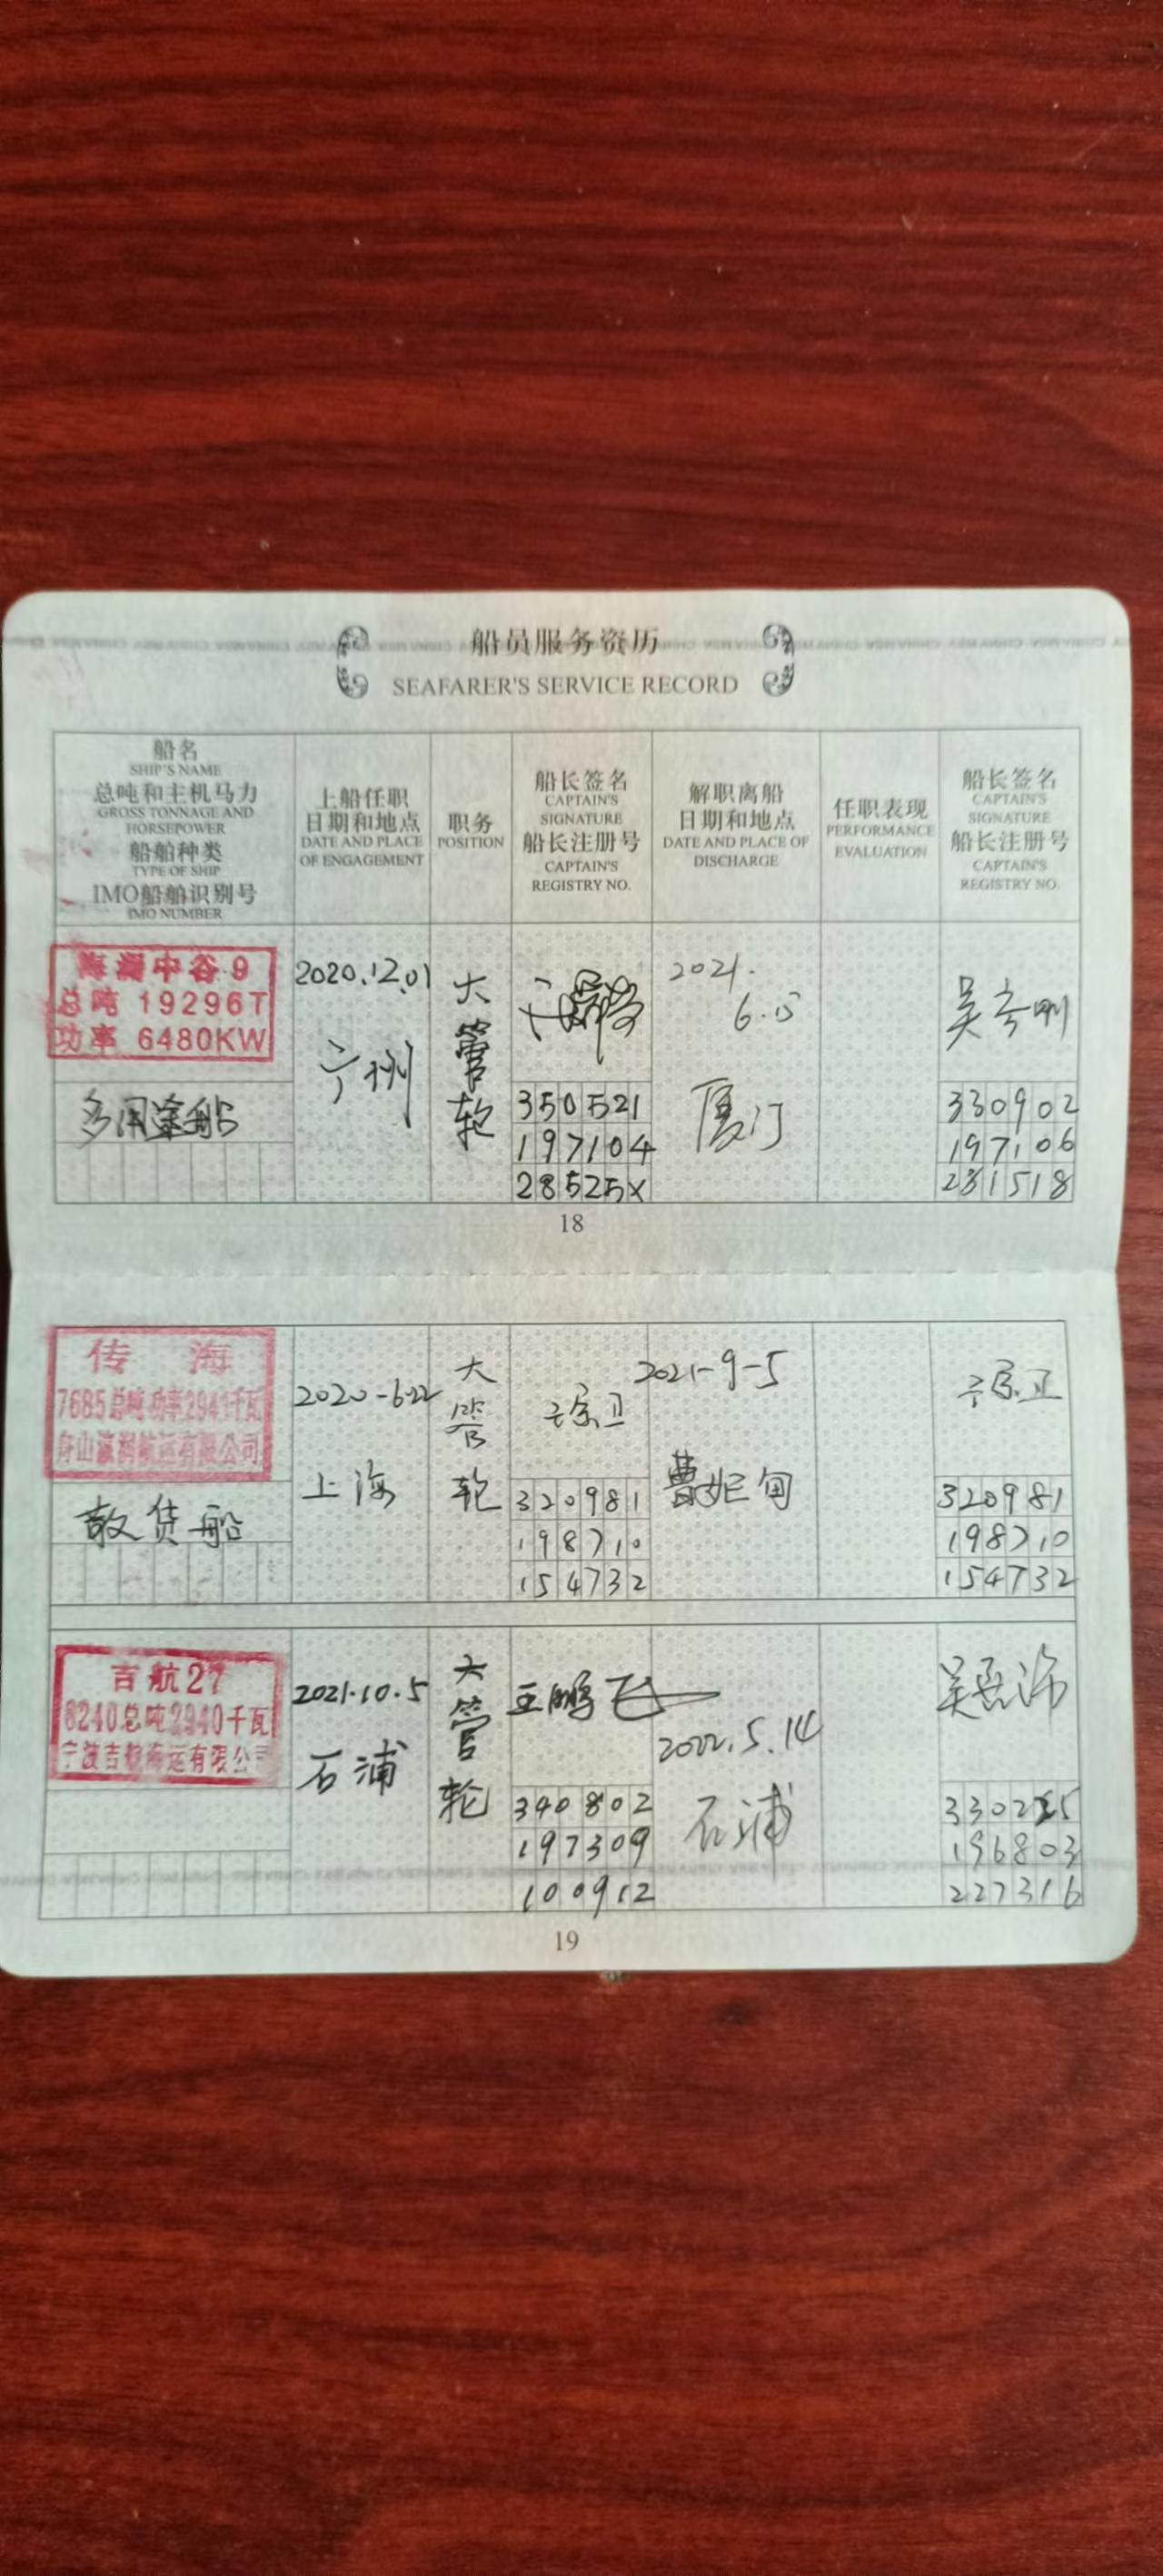 船员服务资历
SEAFARER'S SERVICE RECORD
船名
SHIP'S NAME
总吨和主机马力
GROSS TONNAGE AND
HORSEPOWER
船舶种类
TYPE OF SHIP
IMO船舶识别号
IMO NUMBER
上船任职
日期和地点
DATE AND PLACE
OF ENGAGEMENT
职务
POSITION
船长签名
CAPTAIN'S
SIGNATURE
船长注册号
CAPTAIN'S
REGISTRY NO.
解职离船
日期和地点
DATE AND PLACE OF
DISCHARGE
任职表现
PERFORMANCE
EVALUATION
船长签名
CAPTAIN'S
SIGNATURE
船长注册号
CAPTAIN'S
REGISTRY NO.
海澜中谷9
总吨 19296T
功率 6480KW
多用途船
2020.12.01
广州
大管轮
350521
197104
28525X
2021.
6.
厦门
吴
330902
197106
231518
18
传 海
7685总吨功率2941千瓦
舟山 航运有限公司
散货船
2020-6-22
上海
大管轮
320981
198710
154732
2021-9-5
曹妃甸
320981
198710
154732
吉航27
8240总吨2940千瓦
宁波吉航海运有限公司
2021.10.5
石浦
大管轮
王鹏飞
340802
197309
100912
2022.5.14
石浦
吴
3302 5
196803
227316
19